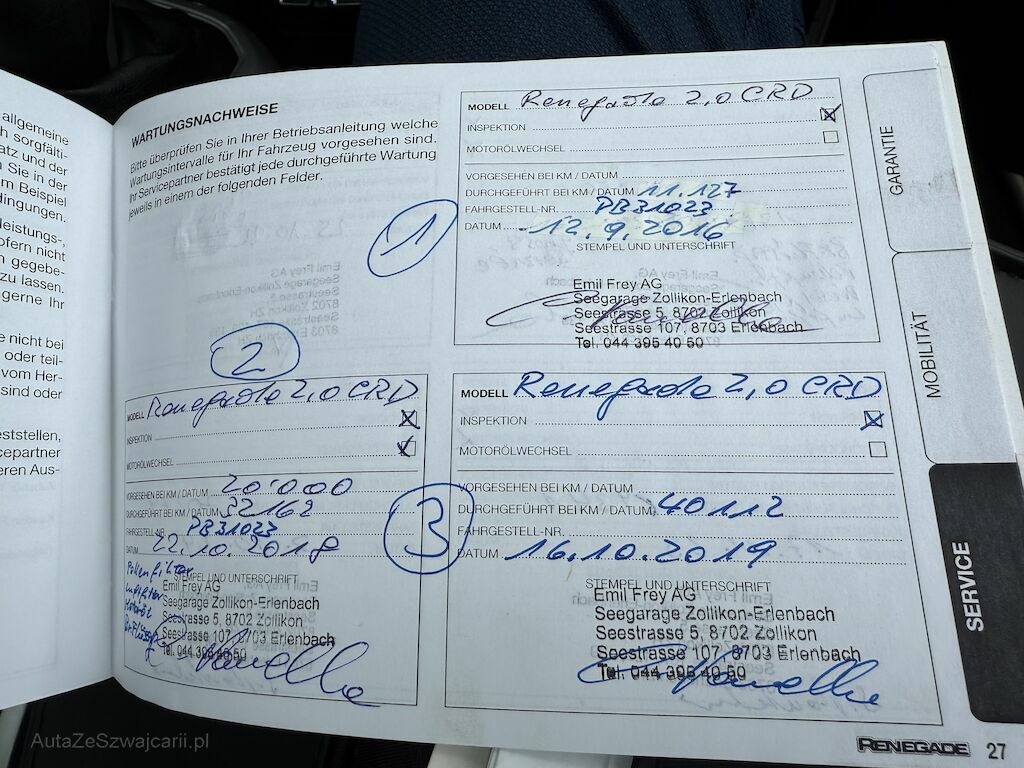 allgemeine
h sorgfälti-
atz und der
n Sie in der
m Beispiel
dingungen.
leistungs-,
ofern nicht
n gegebe-
zu lassen.
gerne Ihr
e nicht bei
oder teil-
vom Her-
sind oder
eststellen,
cepartner
eren Aus-
WARTUNGSNACHWEISE
Bitte überprüfen Sie in Ihrer Betriebsanleitung welche
Wartungsintervalle für Ihr Fahrzeug vorgesehen sind.
Ihr Servicepartner bestätigt jede durchgeführte Wartung
jeweils in einem der folgenden Felder.
1
MODELL Renegade 2,0 CRD
INSPEKTION
MOTORÖLWECHSEL
VORGESEHEN BEI KM / DATUM
DURCHGEFÜHRT BEI KM / DATUM 11.127
FAHRGESTELL-NR. PB31023
DATUM 12.9.2016
STEMPEL UND UNTERSCHRIFT
Emil Frey AG
Seegarage Zollikon-Erlenbach
Seestrasse 5, 8702 Zollikon
Seestrasse 107, 8703 Erlenbach
Tel. 044 395 40 50
2
MODELL Renegade 2,0 CRD
INSPEKTION
MOTORÖLWECHSEL
VORGESEHEN BEI KM / DATUM 20'000
DURCHGEFÜHRT BEI KM / DATUM 32162
FAHRGESTELL-NR. PB31023
DATUM 22.10.2018
Pollenfilter
Luftfilter
Motoröl
STEMPEL UND UNTERSCHRIFT
Emil Frey AG
Seegarage Zollikon-Erlenbach
Seestrasse 5, 8702 Zollikon
Seestrasse 107, 8703 Erlenbach
Tel. 044 395 40 50
3
MODELL Renegade 2,0 CRD
INSPEKTION
MOTORÖLWECHSEL
VORGESEHEN BEI KM / DATUM
DURCHGEFÜHRT BEI KM / DATUM 40112
FAHRGESTELL-NR.
DATUM 16.10.2019
STEMPEL UND UNTERSCHRIFT
Emil Frey AG
Seegarage Zollikon-Erlenbach
Seestrasse 5, 8702 Zollikon
Seestrasse 107, 8703 Erlenbach
Tel. 044 395 40 50
GARANTIE
MOBILITÄT
SERVICE
RENEGADE 27
AutaZeSzwajcarii.pl